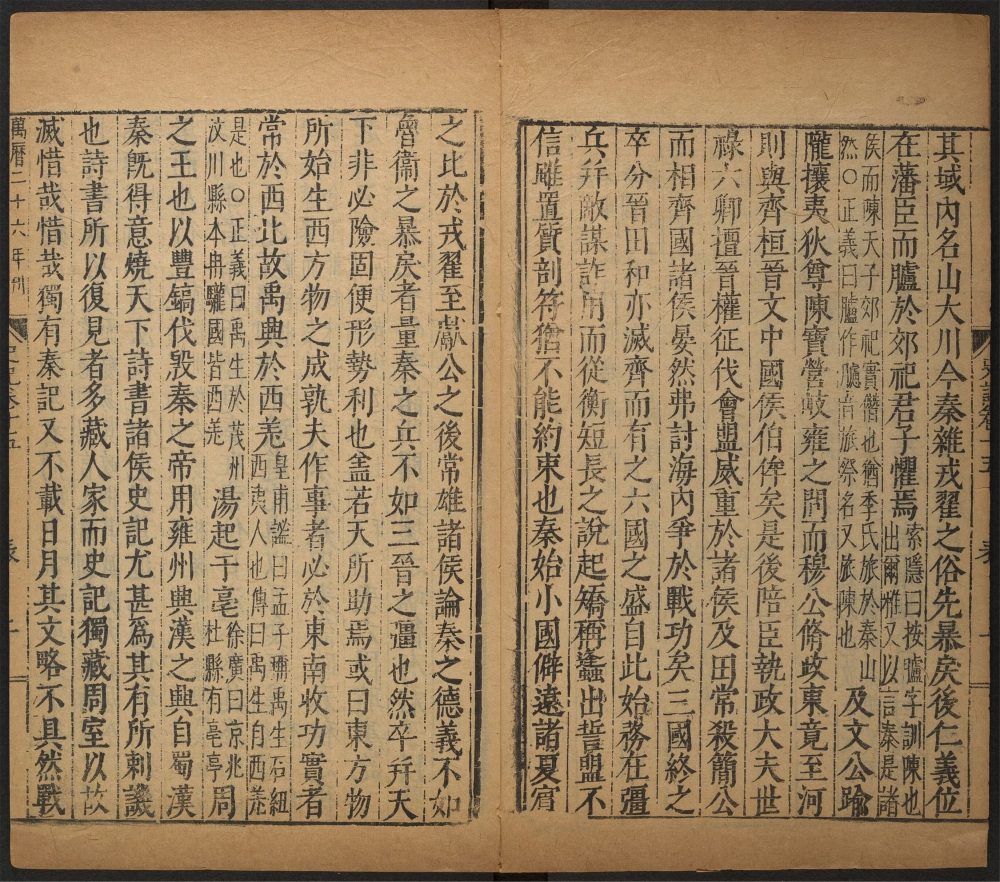 其域內名山大川今秦雜戎翟之俗先暴戾後仁義位
在藩臣而臚於郊祀君子懼焉
索隱曰按臚字訓陳也
出爾雅又以言秦是諸
侯而陳天子郊祀實僭也猶季氏旅於泰山
然○正義曰臚作臚音旅祭名又旅陳也
及文公踰
隴攘夷狄尊陳寶營岐雍之間而穆公脩政東竟至河
則與齊桓晉文中國侯伯侔矣是後陪臣執政大夫世
祿六卿擅晉權征伐會盟威重於諸侯及田常殺簡公
而相齊國諸侯晏然弗討海內爭於戰功矣三國終之
卒分晉田和亦滅齊而有之六國之盛自此始務在彊
兵幷敵謀詐用而從衡短長之說起矯稱蠭出誓盟不
信雖置質剖符猶不能約束也秦始小國僻遠諸夏賓
之比於戎翟至獻公之後常雄諸侯論秦之德義不如
魯衞之暴戾者量秦之兵不如三晉之彊也然卒幷天
下非必險固便形勢利也盖若天所助焉或曰東方物
所始生西方物之成孰夫作事者必於東南收功實者
常於西北故禹興於西羌
皇甫謐曰孟子稱禹生石紐
西夷人也傳曰禹生自西羌
是也○正義曰禹生於茂州
汶川縣本冉駹國皆西羌
湯起于亳
徐廣曰京兆
杜縣有亳亭
周
之王也以豐鎬伐殷秦之帝用雍州興漢之興自蜀漢
秦旣得意燒天下詩書諸侯史記尤甚爲其有所刺譏
也詩書所以復見者多藏人家而史記獨藏周室以故
滅惜哉惜哉獨有秦記又不載日月其文略不具然戰
萬曆二十六年刊